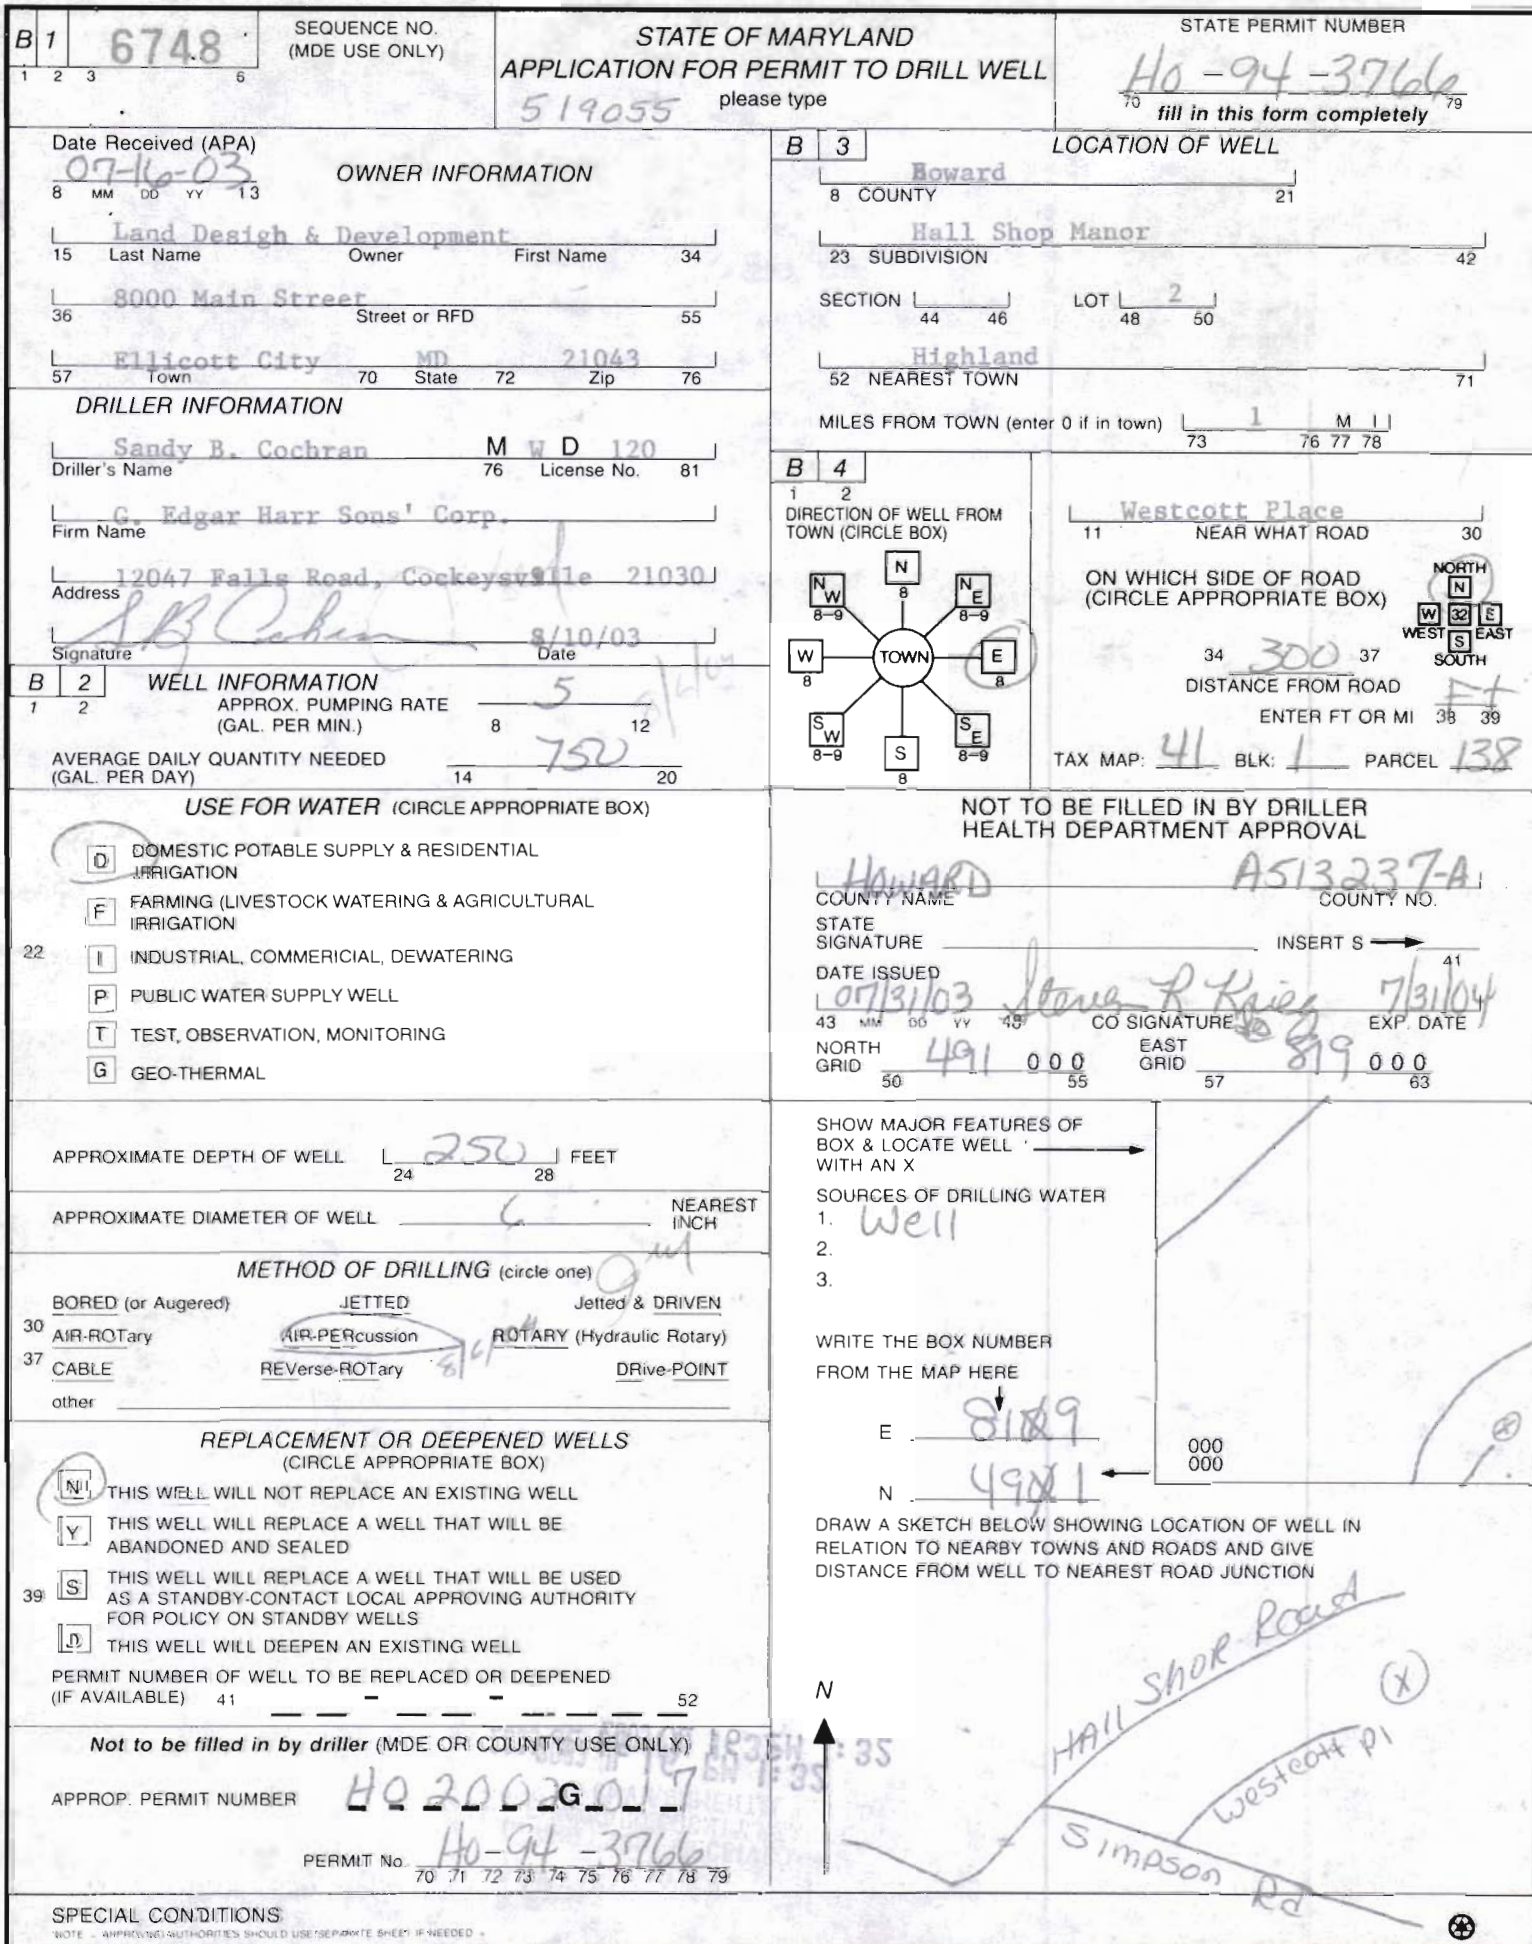 B 1 6748 SEQUENCE NO. (MDE USE ONLY)
1 2 3 6
STATE OF MARYLAND
APPLICATION FOR PERMIT TO DRILL WELL
519055 please type
STATE PERMIT NUMBER
HO-94-3766
70 79
fill in this form completely
Date Received (APA)
07-16-03
8 MM DD YY 13
OWNER INFORMATION
Land Desigh & Development
15 Last Name Owner First Name 34
8000 Main Street
36 Street or RFD 55
Ellicott City MD 21043
57 Town 70 State 72 Zip 76
DRILLER INFORMATION
Sandy B. Cochran M W D 120
Driller's Name 76 License No. 81
G. Edgar Harr Sons' Corp.
Firm Name
12047 Falls Road, Cockeysville 21030
Address
8/10/03
Signature Date
B 2 WELL INFORMATION
1 2
APPROX. PUMPING RATE 5
(GAL. PER MIN.) 8 12
AVERAGE DAILY QUANTITY NEEDED 750
(GAL. PER DAY) 14 20
USE FOR WATER (CIRCLE APPROPRIATE BOX)
D DOMESTIC POTABLE SUPPLY & RESIDENTIAL
IRRIGATION
F FARMING (LIVESTOCK WATERING & AGRICULTURAL
IRRIGATION
22 I INDUSTRIAL, COMMERICIAL, DEWATERING
P PUBLIC WATER SUPPLY WELL
T TEST, OBSERVATION, MONITORING
G GEO-THERMAL
APPROXIMATE DEPTH OF WELL 250 FEET
24 28
APPROXIMATE DIAMETER OF WELL 6 NEAREST
INCH
METHOD OF DRILLING (circle one)
BORED (or Augered) JETTED Jetted & DRIVEN
30 AIR-ROTary AIR-PERcussion ROTARY (Hydraulic Rotary)
37 CABLE REVerse-ROTary DRive-POINT
other
REPLACEMENT OR DEEPENED WELLS
(CIRCLE APPROPRIATE BOX)
N THIS WELL WILL NOT REPLACE AN EXISTING WELL
Y THIS WELL WILL REPLACE A WELL THAT WILL BE
ABANDONED AND SEALED
39 S THIS WELL WILL REPLACE A WELL THAT WILL BE USED
AS A STANDBY-CONTACT LOCAL APPROVING AUTHORITY
FOR POLICY ON STANDBY WELLS
D THIS WELL WILL DEEPEN AN EXISTING WELL
PERMIT NUMBER OF WELL TO BE REPLACED OR DEEPENED
(IF AVAILABLE) 41 - - 52
Not to be filled in by driller (MDE OR COUNTY USE ONLY)
APPROP. PERMIT NUMBER HO2002G017
PERMIT No. HO-94-3766
70 71 72 73 74 75 76 77 78 79
SPECIAL CONDITIONS
NOTE - APPROVING AUTHORITIES SHOULD USE SEPARATE SHEET IF NEEDED -
B 3 LOCATION OF WELL
Howard
8 COUNTY 21
Hall Shop Manor
23 SUBDIVISION 42
SECTION LOT 2
44 46 48 50
Highland
52 NEAREST TOWN 71
MILES FROM TOWN (enter 0 if in town) 1 M I
73 76 77 78
B 4
1 2
DIRECTION OF WELL FROM
TOWN (CIRCLE BOX)
N
8
NW NE
8-9 8-9
W TOWN E
8 8
SW SE
8-9 8-9
S
8
Westcott Place
11 NEAR WHAT ROAD 30
ON WHICH SIDE OF ROAD
(CIRCLE APPROPRIATE BOX)
NORTH
N
W 32 E
WEST EAST
S
SOUTH
34 300 37
DISTANCE FROM ROAD
Ft
ENTER FT OR MI 38 39
TAX MAP: 41 BLK: 1 PARCEL 138
NOT TO BE FILLED IN BY DRILLER
HEALTH DEPARTMENT APPROVAL
HOWARD A513237-A
COUNTY NAME COUNTY NO.
STATE
SIGNATURE INSERT S
41
DATE ISSUED
07/31/03 Steven R Krieg 7/31/04
43 MM DD YY 48 CO SIGNATURE EXP. DATE
NORTH GRID 491 000 EAST GRID 819 000
50 55 57 63
SHOW MAJOR FEATURES OF
BOX & LOCATE WELL
WITH AN X
SOURCES OF DRILLING WATER
1. Well
2.
3.
WRITE THE BOX NUMBER
FROM THE MAP HERE
E 819
N 491
000
000
X
DRAW A SKETCH BELOW SHOWING LOCATION OF WELL IN
RELATION TO NEARBY TOWNS AND ROADS AND GIVE
DISTANCE FROM WELL TO NEAREST ROAD JUNCTION
N
HAll ShOP Road
X
Westcott Pl
Simpson Rd